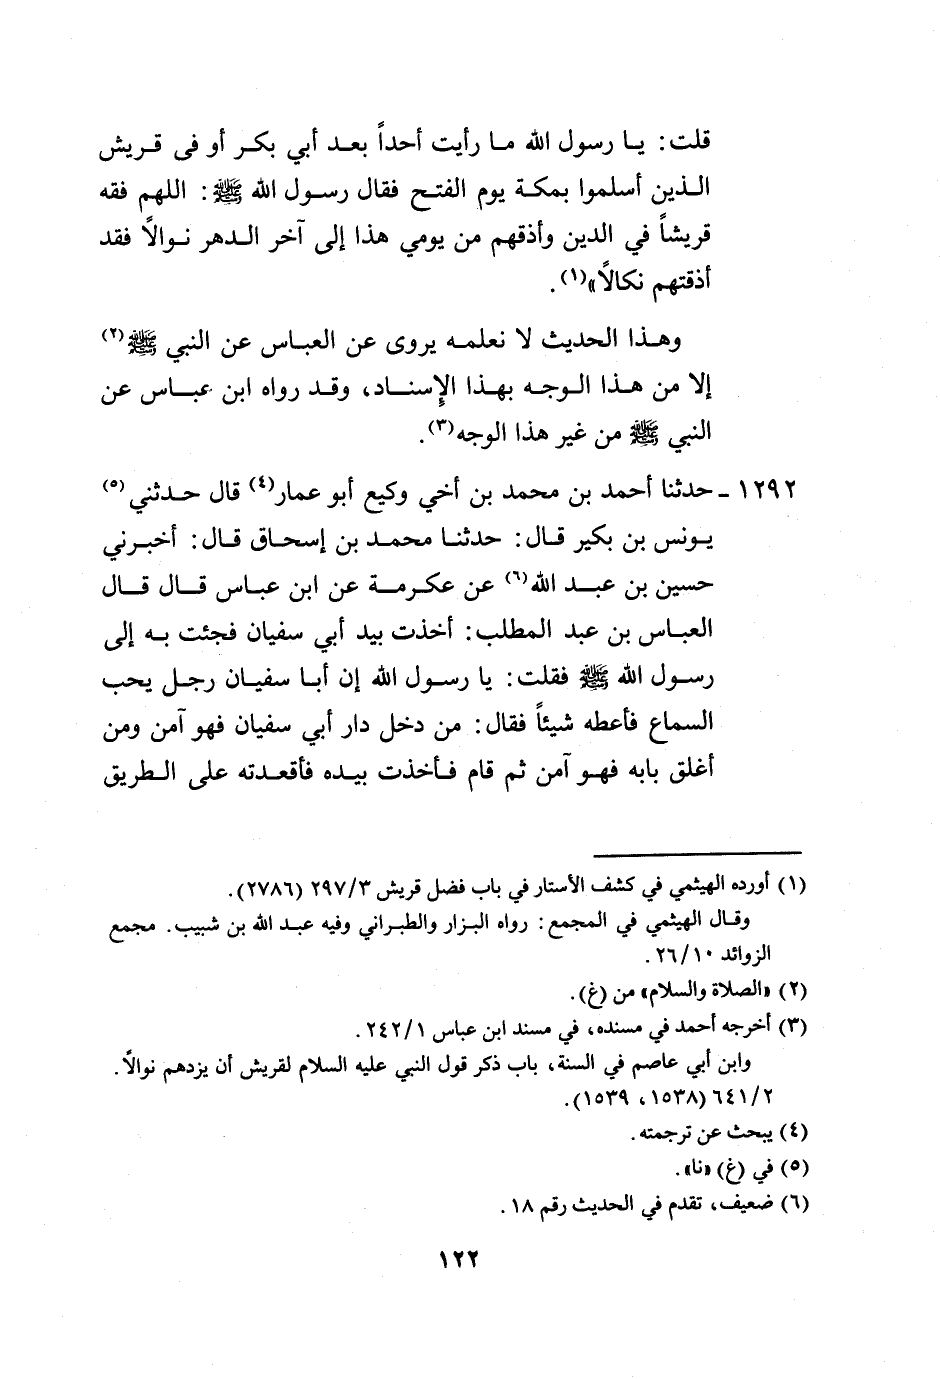 قلت: يا رسول الله ما رأيت أحداً بعد أبي بكر أو فى قريش
الذين أسلموا بمكة يوم الفتح فقال رسول الله ﷺ: اللهم فقه
قريشاً في الدين وأذقهم من يومي هذا إلى آخر الدهر نوالاً فقد
أذقتهم نكالاً»(١).
وهذا الحديث لا نعلمه يروى عن العباس عن النبي ﷺ(٢)
إلا من هذا الوجه بهذا الإسناد، وقد رواه ابن عباس عن
النبي ﷺ من غير هذا الوجه(٣).
١٢٩٢ - حدثنا أحمد بن محمد بن أخي وكيع أبو عمار(٤) قال حدثني(٥)
يونس بن بكير قال: حدثنا محمد بن إسحاق قال: أخبرني
حسين بن عبد الله(٦) عن عكرمة عن ابن عباس قال قال
العباس بن عبد المطلب: أخذت بيد أبي سفيان فجئت به إلى
رسول الله ﷺ فقلت: يا رسول الله إن أبا سفيان رجل يحب
السماع فأعطه شيئاً فقال: من دخل دار أبي سفيان فهو آمن ومن
أغلق بابه فهو آمن ثم قام فأخذت بيده فأقعدته على الطريق
(١) أورده الهيثمي في كشف الأستار في باب فضل قريش ٢٩٧/٣ (٢٧٨٦).
وقال الهيثمي في المجمع: رواه البزار والطبراني وفيه عبد الله بن شبيب. مجمع
الزوائد ٢٦/١٠.
(٢) «الصلاة والسلام» من (غ).
(٣) أخرجه أحمد في مسنده، في مسند ابن عباس ٢٤٢/١.
وابن أبي عاصم في السنة، باب ذكر قول النبي عليه السلام لقريش أن يزدهم نوالاً.
٦٤١/٢ (١٥٣٨، ١٥٣٩).
(٤) يبحث عن ترجمته.
(٥) في (غ) «نا».
(٦) ضعيف، تقدم في الحديث رقم ١٨.
١٢٢